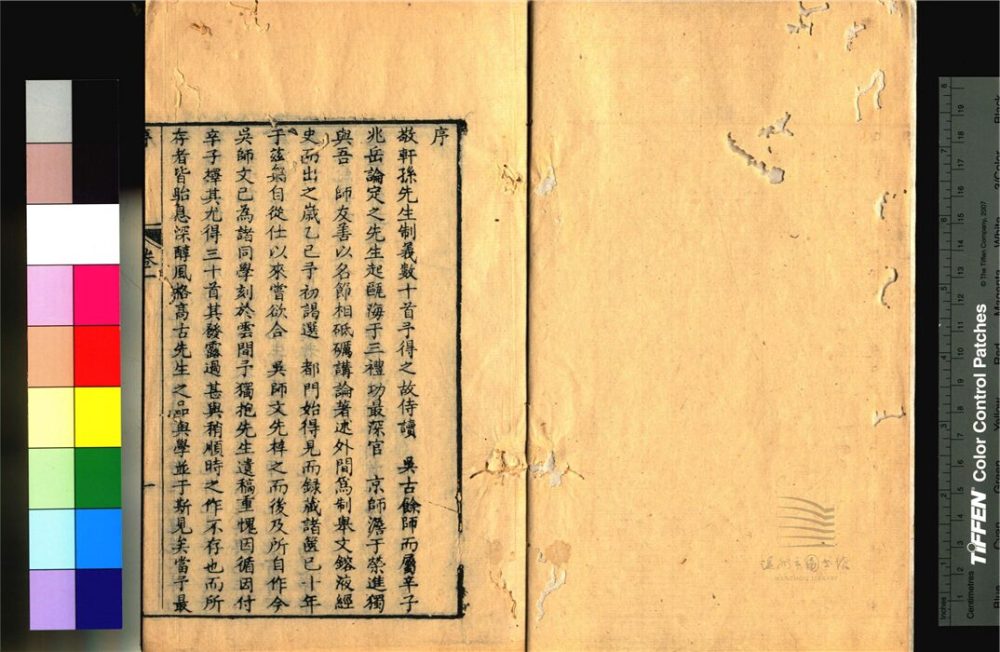 序
敬軒孫先生制義數十首予得之故侍讀 吳古餘師而屬辛子
兆岳論定之先生起甌海于三禮功最深官 京師澹于榮進獨
與吾 師友善以名節相砥礪講論著述外間為制舉文鎔液經
史而出之歲乙巳予初謁選 都門始得見而錄藏諸篋已十年
于茲矣自從仕以來嘗欲合 吳師文先梓之而後及所自作今
吳師文已為諸同學刻於雲間予獨抱先生遺稿重愧因循因付
辛子擇其尤得三十首其發露過甚與稍順時之作不存也而所
存者皆胎息深醇風格高古先生之品與學並于斯見矣當予最
序
卷一
一
TIFFEN Color Control Patches
© The Tiffen Company, 2007
Centimetres
Inches
溫州市圖書館
WENZHOU LIBRARY